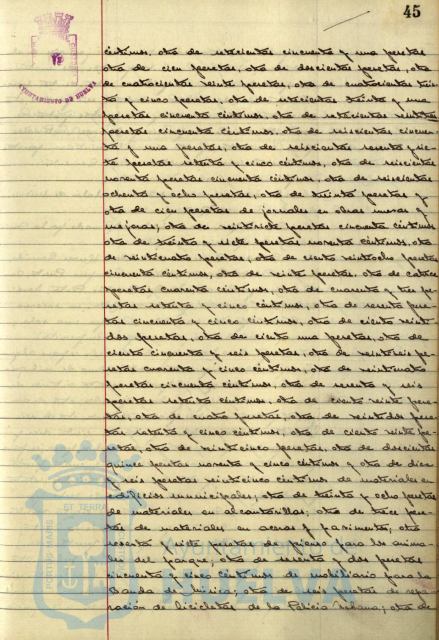 45
AYUNTAMIENTO DE HUELVA
céntimos, otra de setecientas cincuenta y una pesetas
otra de cien pesetas, otra de doscientas pesetas, otra
de cuatrocientas veinte pesetas, otra de cuatrocientas trein-
ta y cinco pesetas, otra de setecientas treinta y una
pesetas cincuenta céntimos, otra de setecientas
pesetas cincuenta céntimos, otra de seiscientas cincuen-
ta y una pesetas, otra de seiscientas sesenta y sie-
te pesetas setenta y cinco céntimos, otra de seiscientas
noventa pesetas cincuenta céntimos, otra de seiscientas
ochenta y ocho pesetas, otra de treinta pesetas y
otra de cien pesetas de jornales en obras nuevas y
mejoras; otra de veintisiete pesetas cincuenta céntimos
otra de treinta y siete pesetas noventa céntimos, otra
de veinticuatro pesetas, otra de ciento veintiocho pesetas
cincuenta céntimos, otra de veinte pesetas, otra de catorce
pesetas cuarenta céntimos, otra de cuarenta y tres pe-
setas setenta y cinco céntimos, otra de sesenta pese-
tas cincuenta y cinco céntimos, otra de ciento veinti-
dos pesetas, otra de ciento una pesetas, otra de
ciento cincuenta y seis pesetas, otra de veintiseis pe-
setas cuarenta y cinco céntimos, otra de veinticuatro
pesetas cincuenta céntimos, otra de sesenta y seis
pesetas setenta céntimos, otra de ciento veinte pese-
tas, otra de cuatro pesetas, otra de veintidos pese-
tas setenta y cinco céntimos, otra de ciento veinte pe-
setas, otra de veinticinco pesetas, otra de doscientas
quince pesetas noventa y cinco céntimos y otra de diez
y seis pesetas veinticinco céntimos de materiales en
edificios municipales; otra de treinta y ocho pesetas
de materiales en alcantarillas; otra de trece pese-
tas de materiales en aceras y pavimentos; otra
sesenta y siete pesetas de pienso para los anima-
les del parque; otra de sesenta y dos pesetas
cincuenta y cinco céntimos de mobiliario para la
Banda de Música; otra de seis pesetas de repa-
ración de bicicletas de la Policía Urbana; otra de